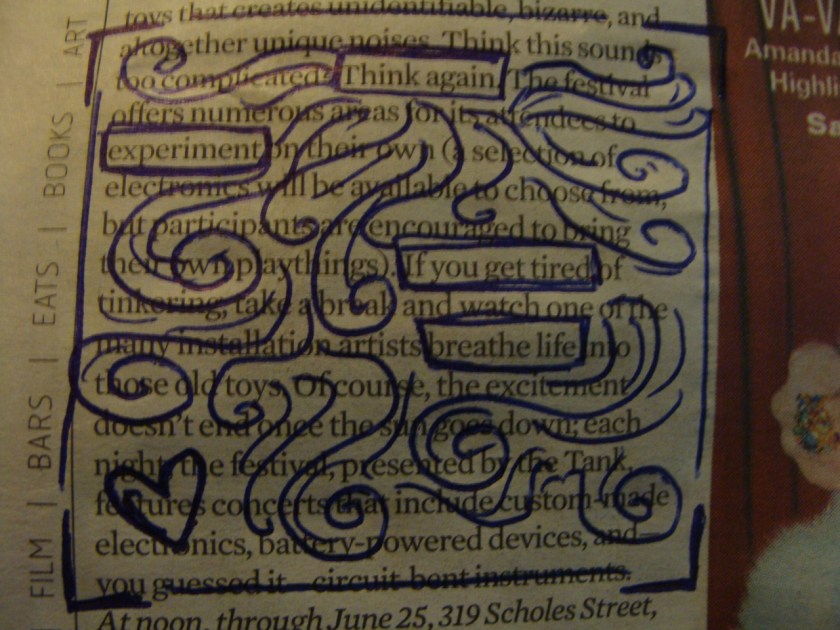 toys that creates unidentifiable, bizarre, and
altogether unique noises. Think this sounds
too complicated? Think again. The festival
offers numerous areas for its attendees to
experiment on their own (a selection of
electronics will be available to choose from,
but participants are encouraged to bring
their own playthings). If you get tired of
tinkering, take a break and watch one of the
many installation artists breathe life into
those old toys. Of course, the excitement
doesn't end once the sun goes down; each
night, the festival, presented by the Tank,
features concerts that include custom-made
electronics, battery-powered devices, and—
you guessed it—circuit-bent instruments.
At noon, through June 25, 319 Scholes Street,
FILM | BARS | EATS | BOOKS | ART
VA-V
Amanda
Highli
Sa